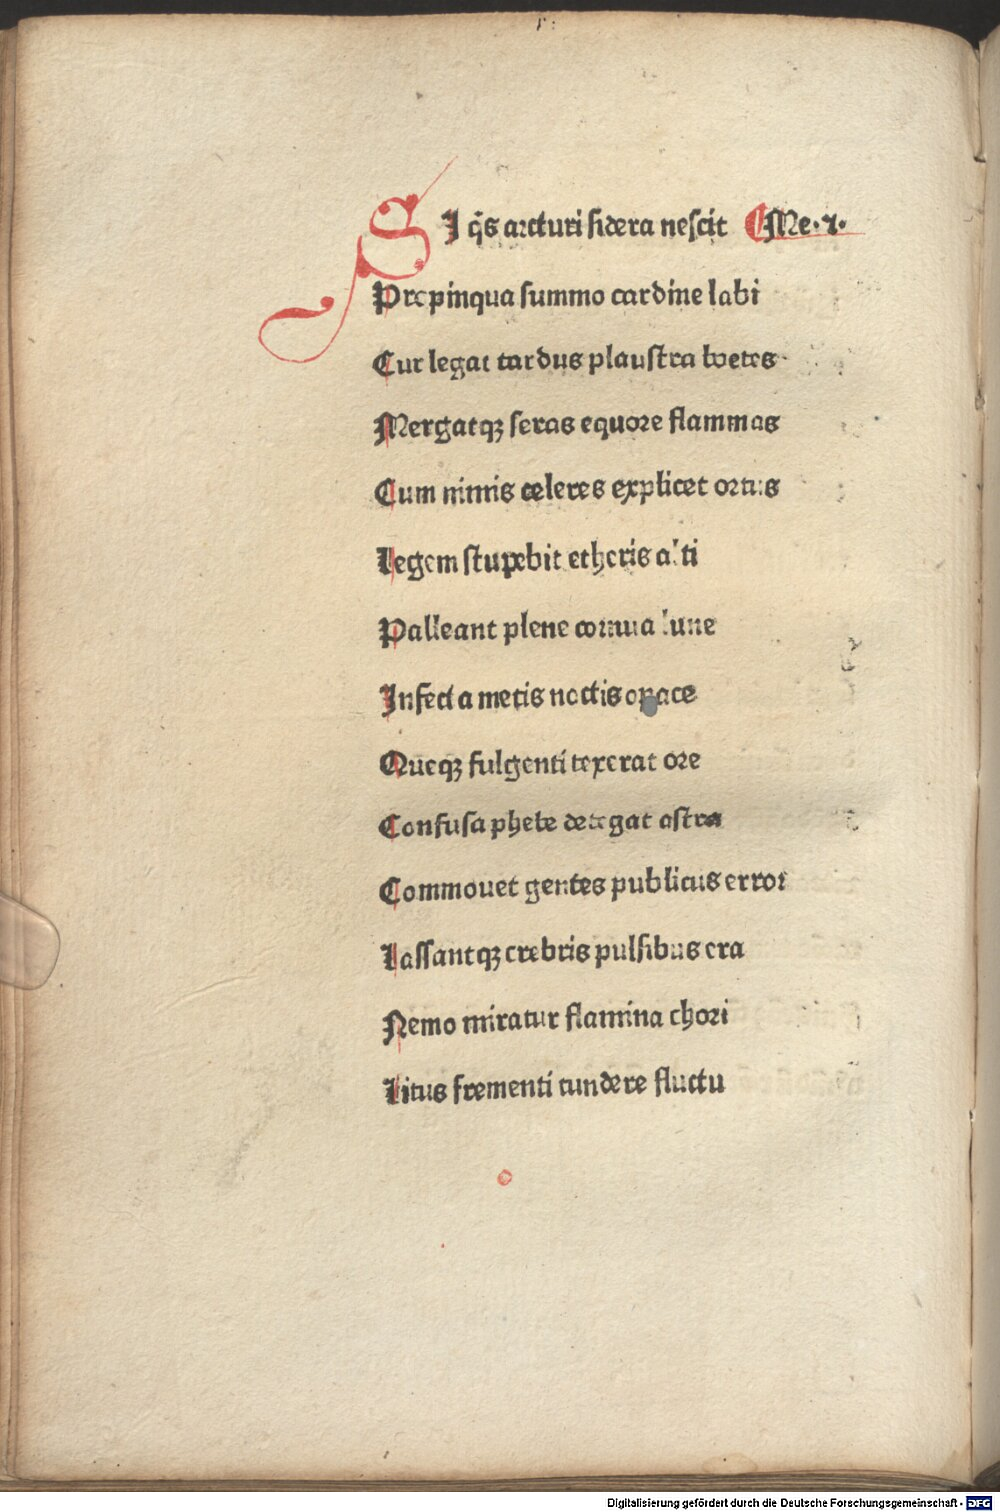 SI q̄s arcturi sidera nescit ⸿Me·ɿ·
Propinqua summo cardine labi
Cur legat tardus plaustra boetes
Mergatqꝫ seras equore flammas
Cum nimis celeres explicet ortus
Legem stupebit etheris alti
Palleant plene cornua lune
Infecta metis noctis opace
Queqꝫ fulgenti texerat ore
Confusa phebe detegat astra
Commouet gentes publicus error
Lassantqꝫ crebris pulsibus era
Nemo miratur flamina chori
Litus frementi tundere fluctu
Digitalisierung gefördert durch die Deutsche Forschungsgemeinschaft - DFG